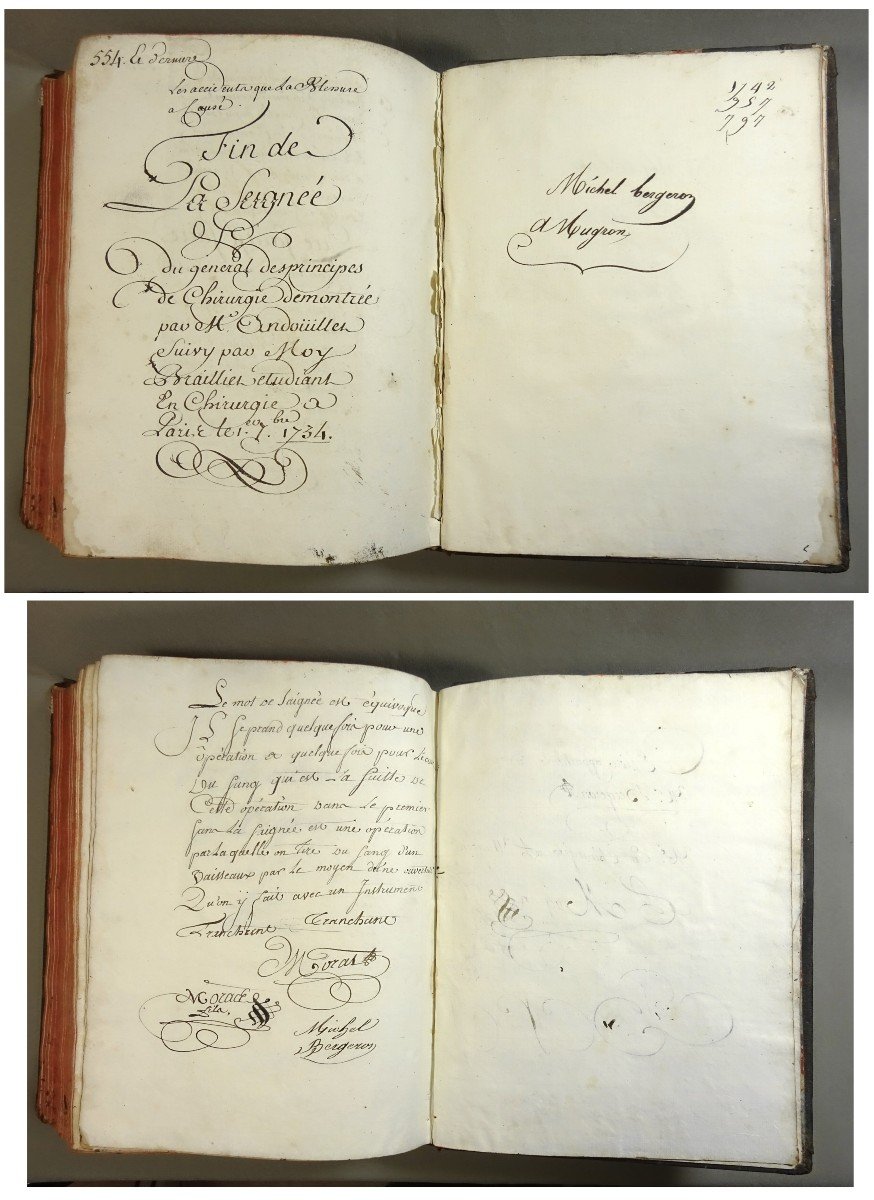 554. Le dernier
Les accidents que La Blessure
a Causé.
Fin de
La Seignée
du general des principes
de Chirurgie demontrée
par Mr. Andoüillet
Suivy par Moy
Braillier etudiant
En Chirurgie a
Paris le 1.er 7.bre 1734.
1742
957
797
Michel bergeron
a Mugron
Le mot de Saignée est équivoque
Il Se prand quelque fois pour une
opération & quelque fois pour
Du Sang qu'est La Suitte de
Cette opération Dans Le premier
Sans La Saignée est une opération
par Laquelle on Tire Du Sang d'un
Vaisseaux par Le moyen d'une ouverture
Qu'on y fait avec un Instrument
Tranchant Tranchant
Michel
Bergeron